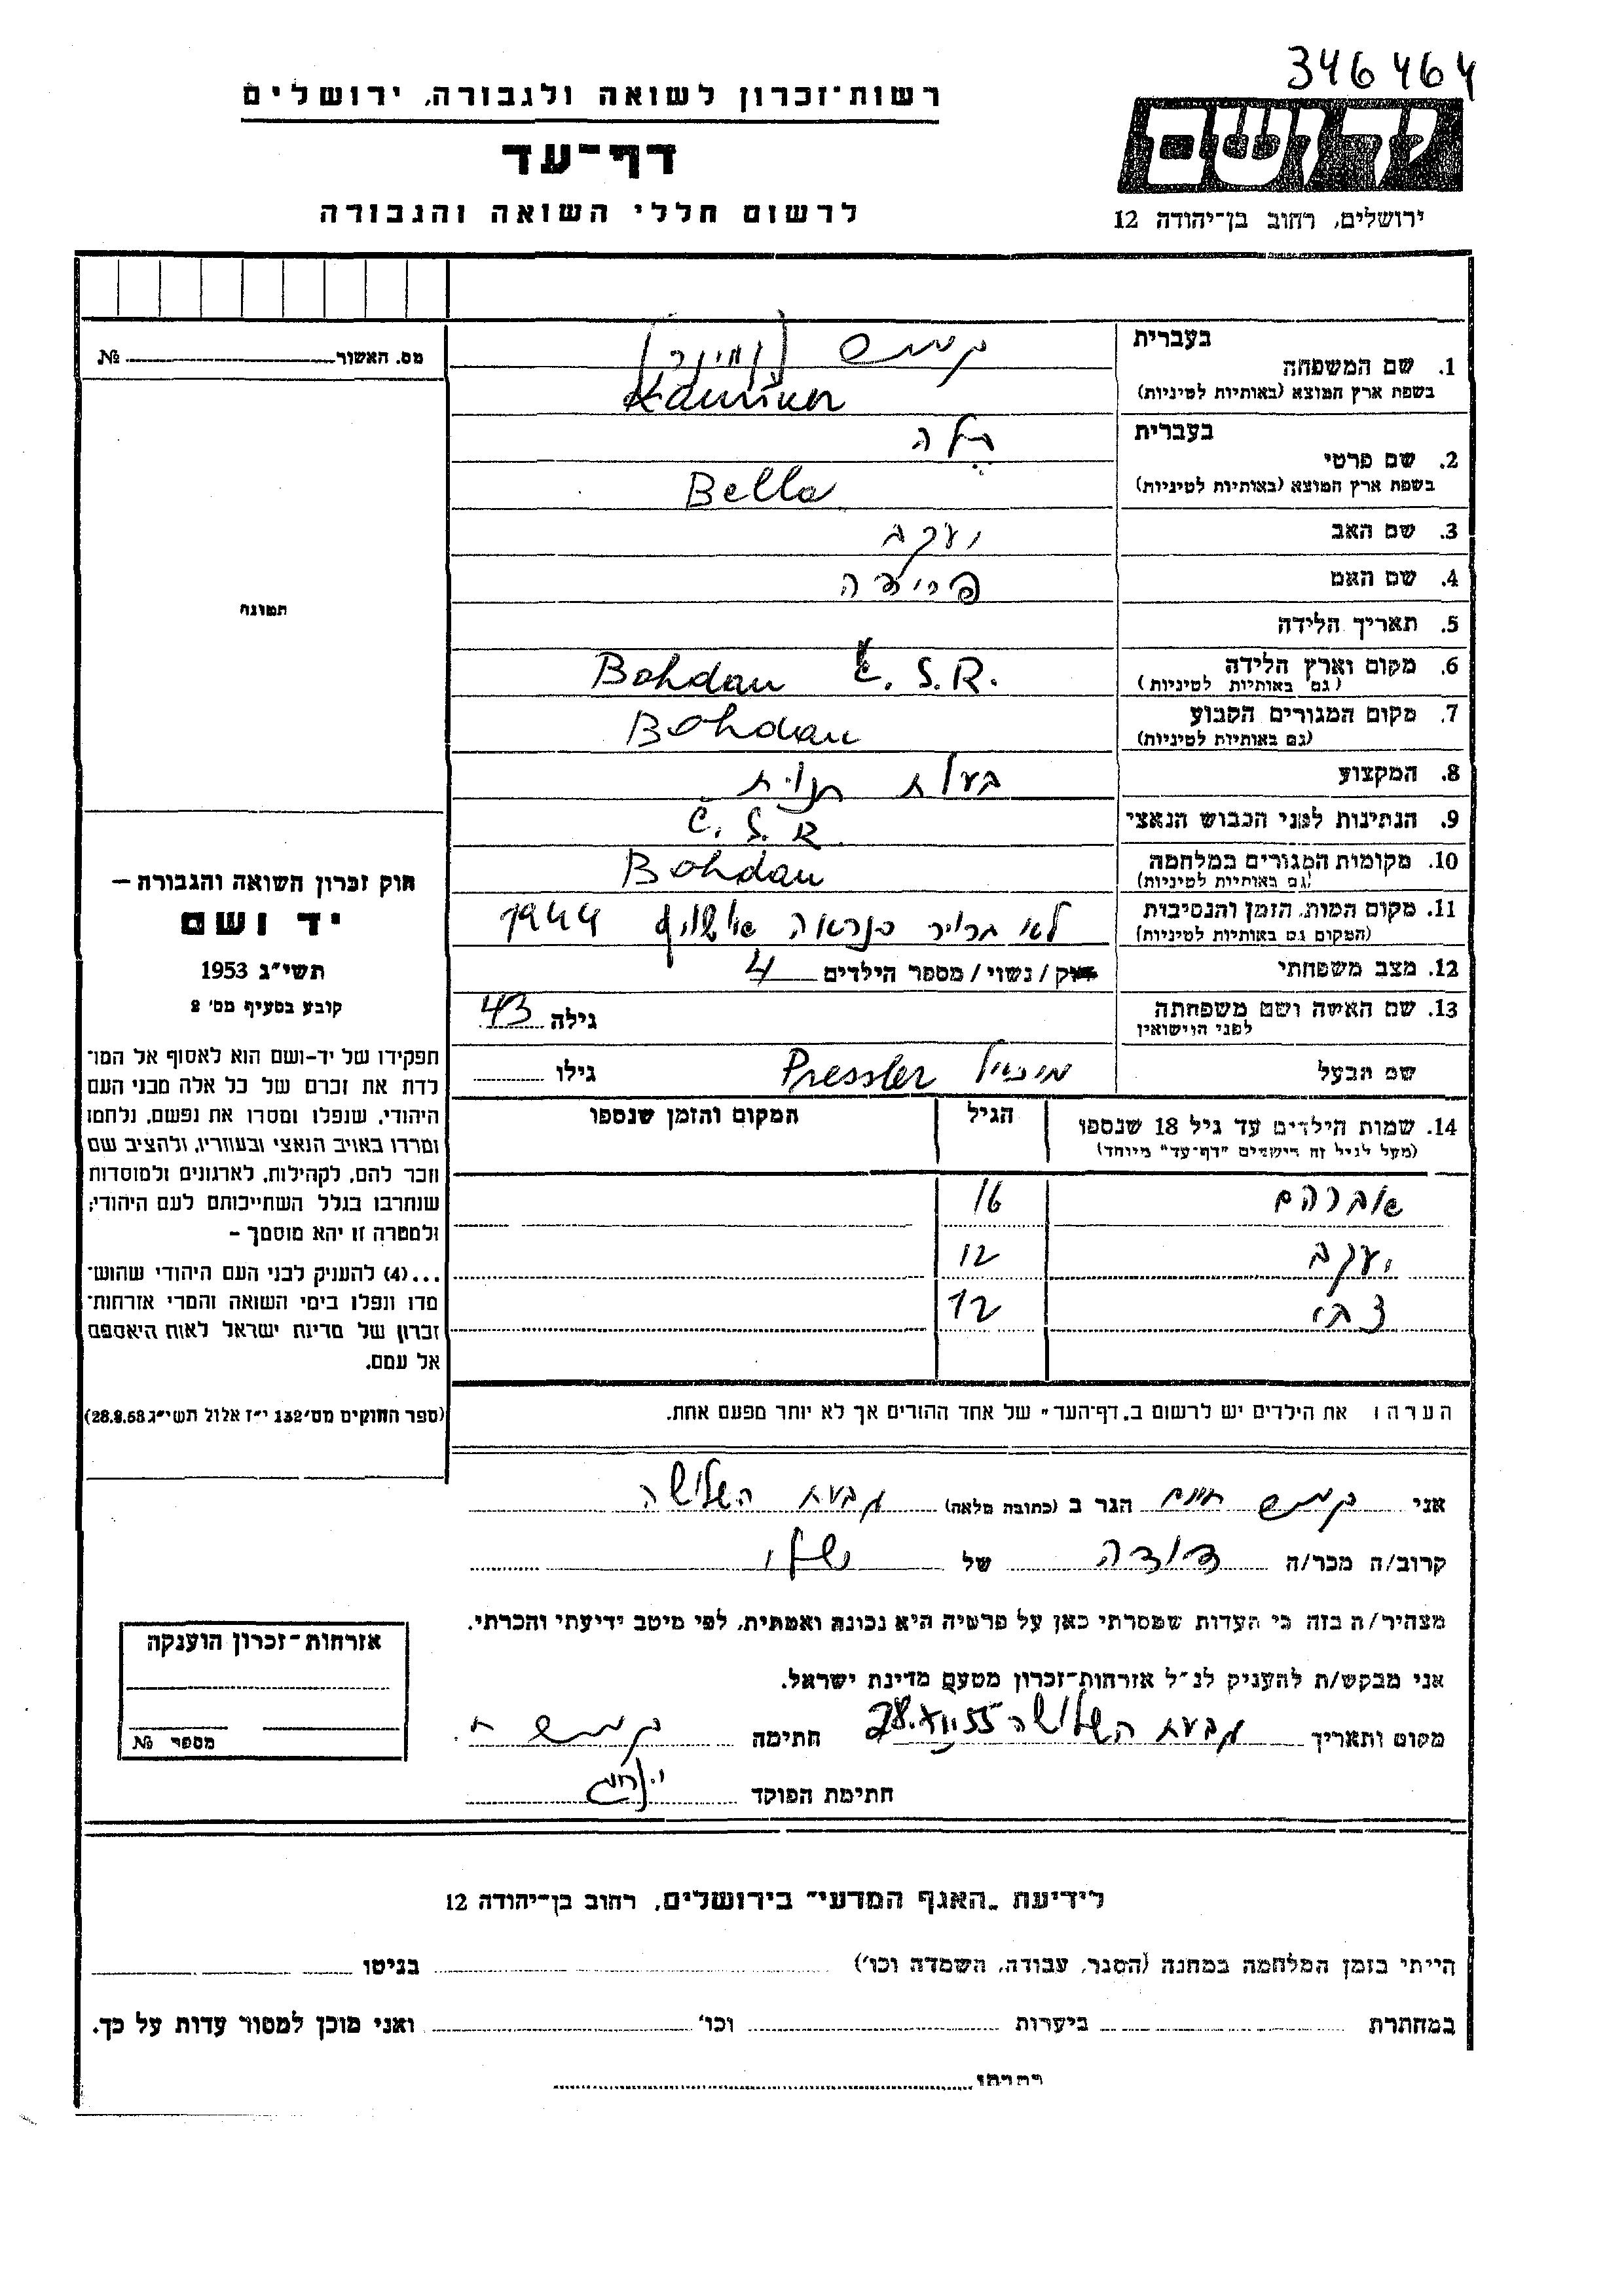 346464
רשות־זכרון לשואה ולגבורה, ירושלים
דף־עד
לרשום חללי השואה והגבורה
ידושם
ירושלים, רחוב בן־יהודה 12
מס. האשור № 
1. שם המשפחה
בעברית
בשפת ארץ המוצא (באותיות לטיניות)
2. שם פרטי
בעברית
בשפת ארץ המוצא (באותיות לטיניות) Bella
3. שם האב יעקב
4. שם האם פריידה
5. תאריך הלידה
6. מקום וארץ הלידה Bohdan Č. S. R.
(גם באותיות לטיניות)
7. מקום המגורים הקבוע Bohdan
(גם באותיות לטיניות)
8. המקצוע בעלת חנות
9. הנתינות לפני הכבוש הנאצי Č. S. R
10. מקומות המגורים במלחמה Bohdan
(גם באותיות לטיניות)
11. מקום המות, הזמן והנסיבות לא ברור כנראה אושויץ 1944
(המקום גם באותיות לטיניות)
12. מצב משפחתי רווק / נשוי / מספר הילדים 4
13. שם האשה ושם משפחתה גילה 43
לפני הנישואין
שם הבעל Pressler גילו
14. שמות הילדים עד גיל 18 שנספו הגיל המקום והזמן שנספו
(מעל לגיל זה רישמים "דף־עד" מיוחד)
אברהם 16
יעקב 12
צבי 12
הערה: את הילדים יש לרשום ב„דף־העד" של אחד ההורים אך לא יותר מפעם אחת.
תמונה
חוק זכרון השואה והגבורה –
יד ושם
תשי״ג 1953
קובע בסעיף מס׳ 2
תפקידו של יד-ושם הוא לאסוף אל המו־
לדת את זכרם של כל אלה מבני העם
היהודי, שנפלו ומסרו את נפשם, נלחמו
ומרדו באויב הנאצי ובעוזריו, ולהציב שם
וזכר להם, לקהילות, לארגונים ולמוסדות
שנחרבו בגלל השתייכותם לעם היהודי;
ולמטרה זו יהא מוסמך –
...(4) להעניק לבני העם היהודי שהוש־
מדו ונפלו בימי השואה והמרי אזרחות־
זכרון של מדינת ישראל לאות היאספם
אל עמם.
(ספר החוקים מס׳ 132 י״ז אלול תשי״ג 28.8.53)
אני קמיש חיים הגר ב (כתובת מלאה) גבעת השלושה
קרוב/ה מכר/ה דודה של שלי
מצהיר/ה בזה כי העדות שמסרתי כאן על פרטיה היא נכונה ואמתית, לפי מיטב ידיעתי והכרתי.
אני מבקש/ת להעניק לנ״ל אזרחות־זכרון מטעם מדינת ישראל.
מקום ותאריך גבעת השלושה 28.XII.55 חתימה קמיש ח
חתימת הפוקד
אזרחות־זכרון הוענקה
מספר №
לידיעת „האגף המדעי" בירושלים, רחוב בן־יהודה 12
הייתי בזמן המלחמה במחנה (הסגר, עבודה, השמדה וכו׳) בגיטו
במחתרת ביערות וכו׳ ואני מוכן למסור עדות על כך.